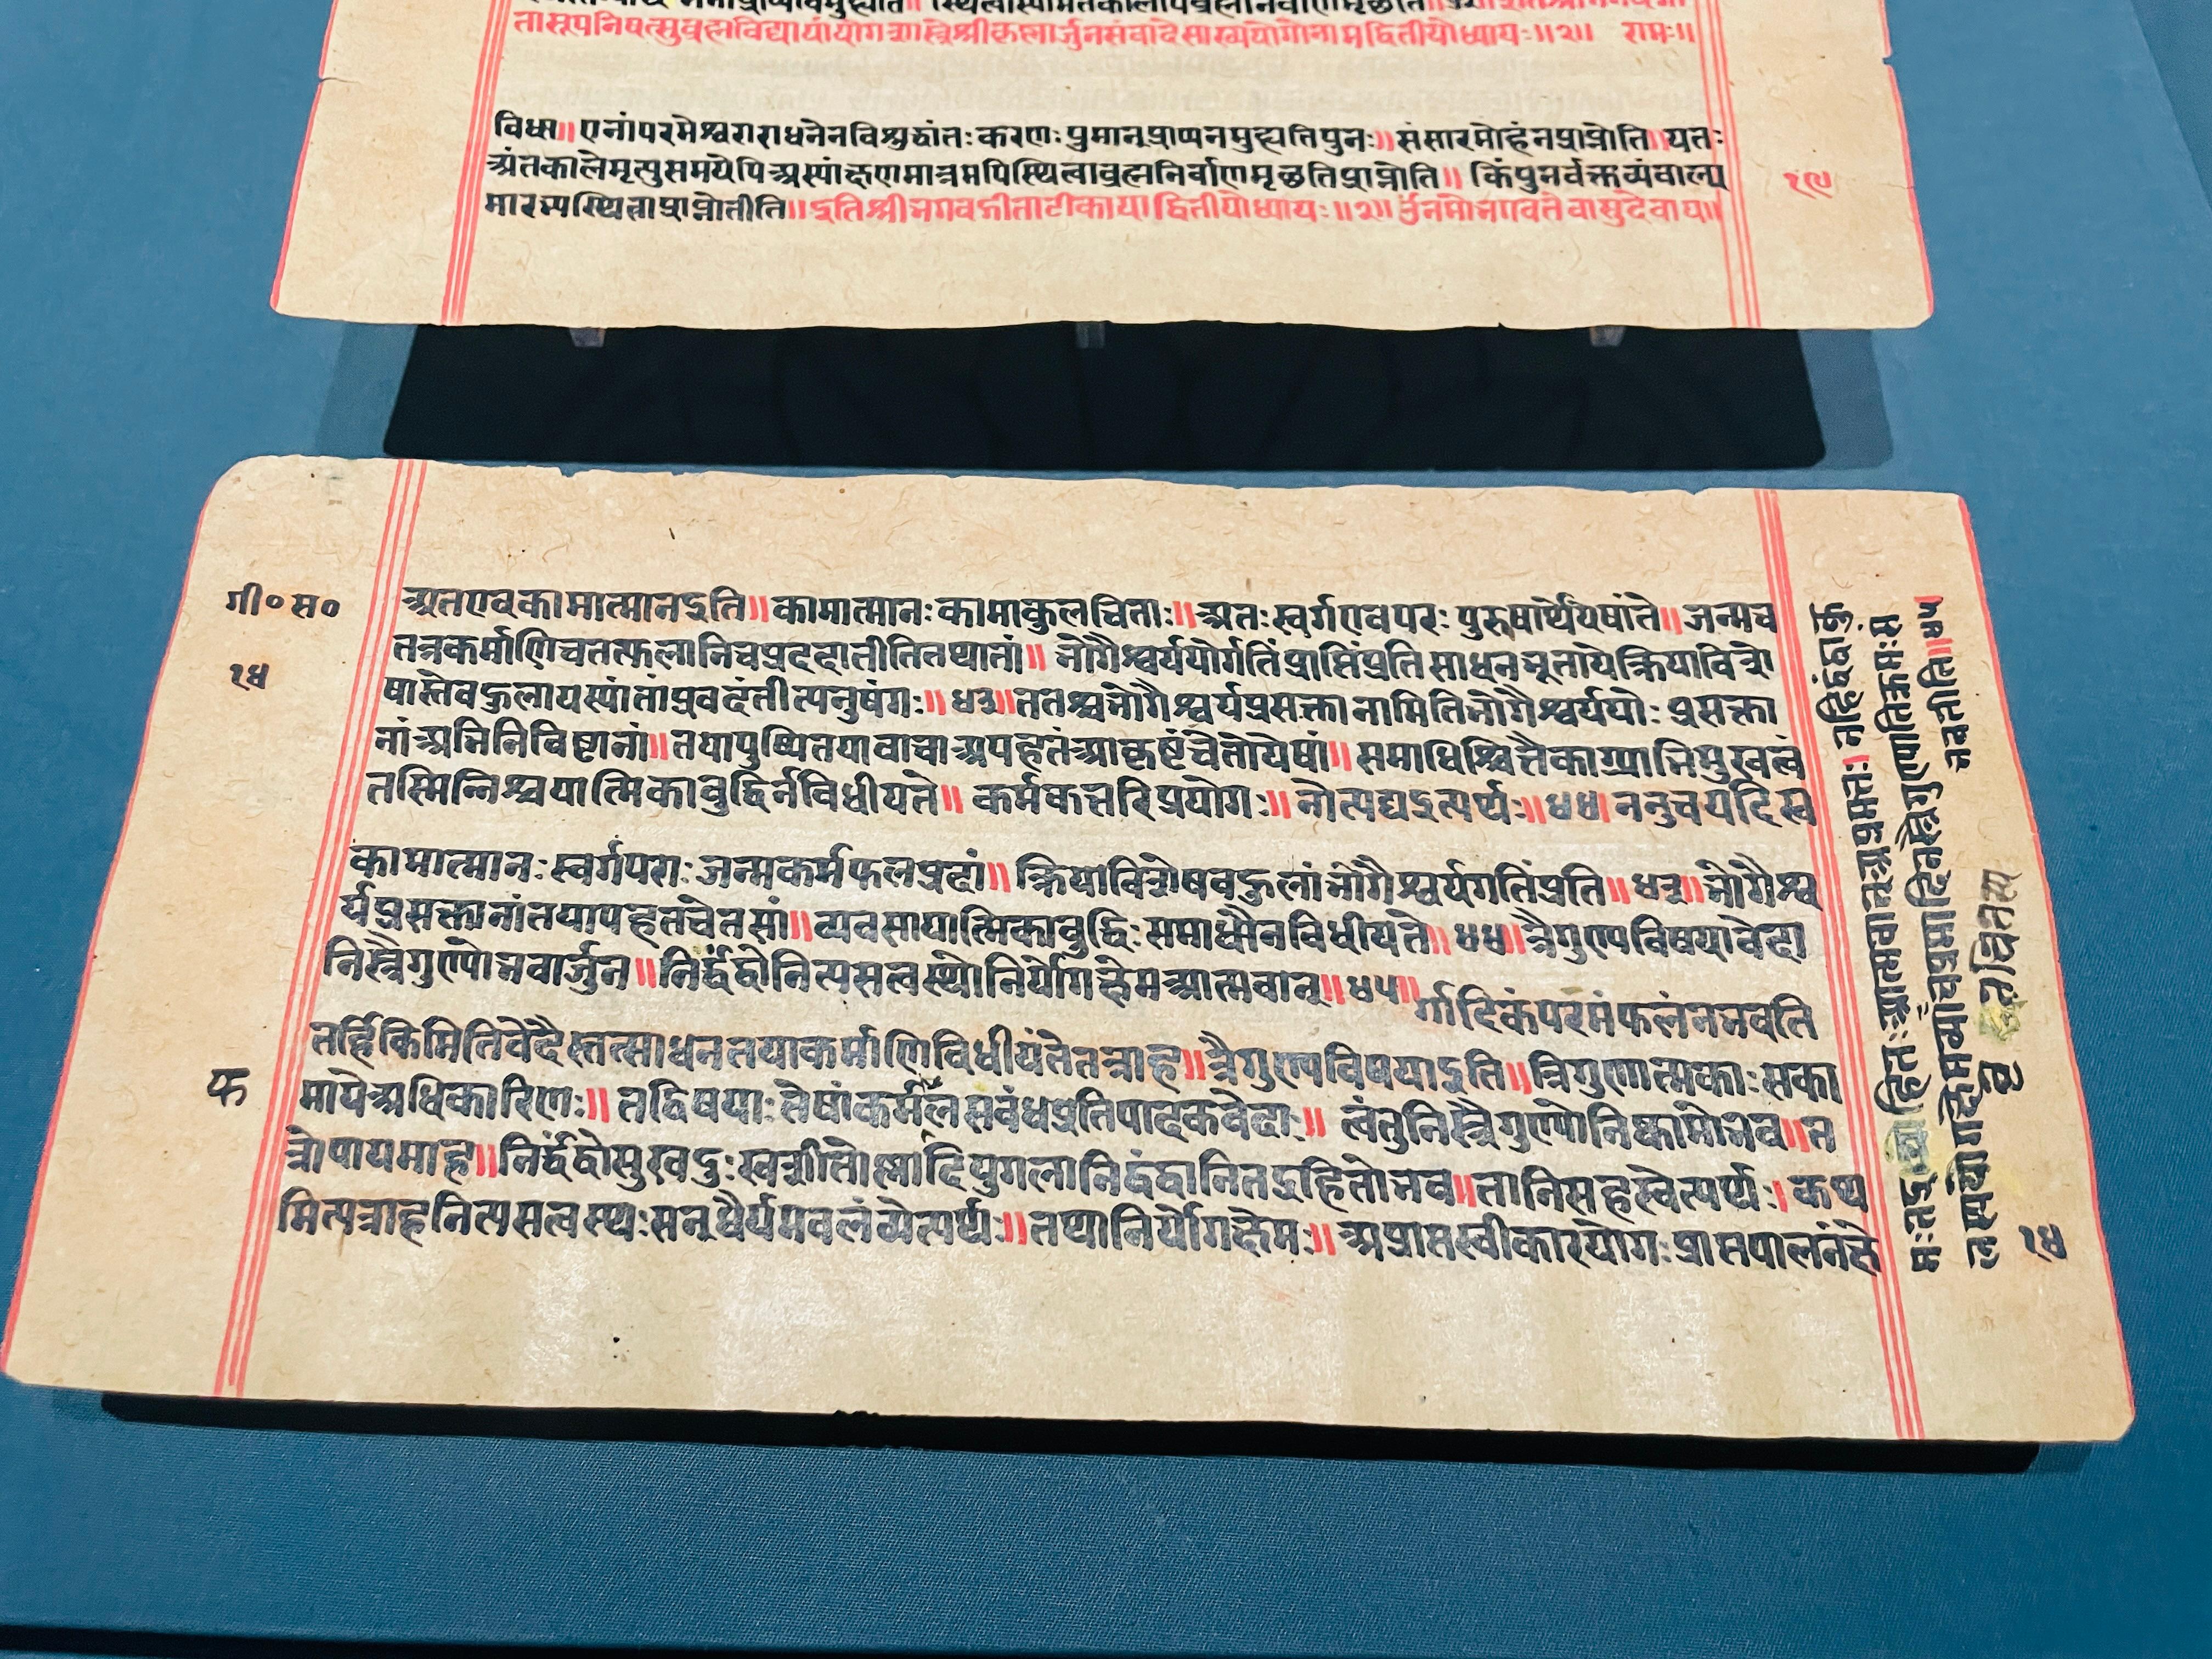 तासूपनिषत्सुब्रह्मविद्यायांयोगशास्त्रेश्रीकृष्णार्जुनसंवादेसांख्ययोगोनामद्वितीयोध्यायः॥२॥ रामः॥
विधा॥एनांपरमेश्वराराधनेनविशुद्धांतःकरणःपुमान्प्राप्यनमुह्यतिपुनः॥संसारमोहंनप्राप्नोति॥यतः
अंतकालेमृत्युसमयेपिअस्यांक्षणमात्रमपिस्थित्वाब्रह्मनिर्वाणमृछतिप्राप्नोति॥ किंपुनर्वक्तव्यंबाल्य
मारभ्यस्थित्वाप्राप्नोतीति॥इतिश्रीभगवद्गीताटीकायांद्वितीयोध्यायः॥२॥ ॐनमोभगवतेवासुदेवाय॥
१९
गी०स०
१४
अतएवकामात्मानइति॥कामात्मानःकामाकुलचित्ताः॥अतःस्वर्गएवपरःपुरुषार्थोयेषांते॥जन्मच
तत्रकर्माणिचतत्फलानिचप्रददातीतितथातां॥ भोगैश्वर्ययोर्गतिंप्राप्तिंप्रतिसाधनभूतायेक्रियाविशे
षास्तेबहुलायस्यांतांप्रवदंतीत्यनुषंगः॥४३॥ततश्चभोगैश्वर्यप्रसक्तानामितिभोगैश्वर्ययोःप्रसक्ता
नांअभिनिविष्टानां॥तयापुष्पितयावाचाअपहृतंआकृष्टंचेतोयेषां॥समाधिश्चित्तैकाग्र्याभिमुखत्वं
तस्मिन्निश्चयात्मिकाबुद्धिर्नविधीयते॥ कर्मकर्त्तरिप्रयोगः॥नोत्पद्यइत्यर्थः॥४४॥ननुचयदिस्व
कामात्मानःस्वर्गपराःजन्मकर्मफलप्रदां॥ क्रियाविशेषबहुलांभोगैश्वर्यगतिंप्रति॥४३॥भोगैश्व
र्यप्रसक्तानांतयापहृतचेतसां॥व्यवसायात्मिकाबुद्धिःसमाधौनविधीयते॥४४॥त्रैगुण्यविषयावेदा
निस्त्रैगुण्योभवार्जुन॥निर्द्वंद्वोनित्यसत्वस्थोनिर्योगक्षेमआत्मवान्॥४५॥
र्गादिकंपरमंफलंनभवति
तर्हिकिमितिवेदैस्तत्साधनतयाकर्माणिविधीयंतेतत्राह॥त्रैगुण्यविषयाइति॥त्रिगुणात्मकाःसका
मायेअधिकारिणः॥तद्विषयाःतेषांकर्मलसंबंधप्रतिपादकवेदाः॥ त्वंतुनिस्त्रैगुण्योनिष्कामोभव॥त
फ
त्रोपायमाह॥निर्द्वंद्वोसुखदुःखशीतोष्णादियुगलानिद्वंद्वानितद्रहितोभव॥तानिसहस्वेत्यर्थः।कथ
मित्यत्राहनित्यसत्वस्थःसन्धैर्यमवलंब्येत्यर्थः॥तथानिर्योगक्षेमः॥अप्राप्तस्वीकारयोगःप्राप्तपालनंक्षे
मःतद्रहितःआत्मवानअप्रमत्तः।नहिद्वंद्वाकु
भवतीति॥४५
१४